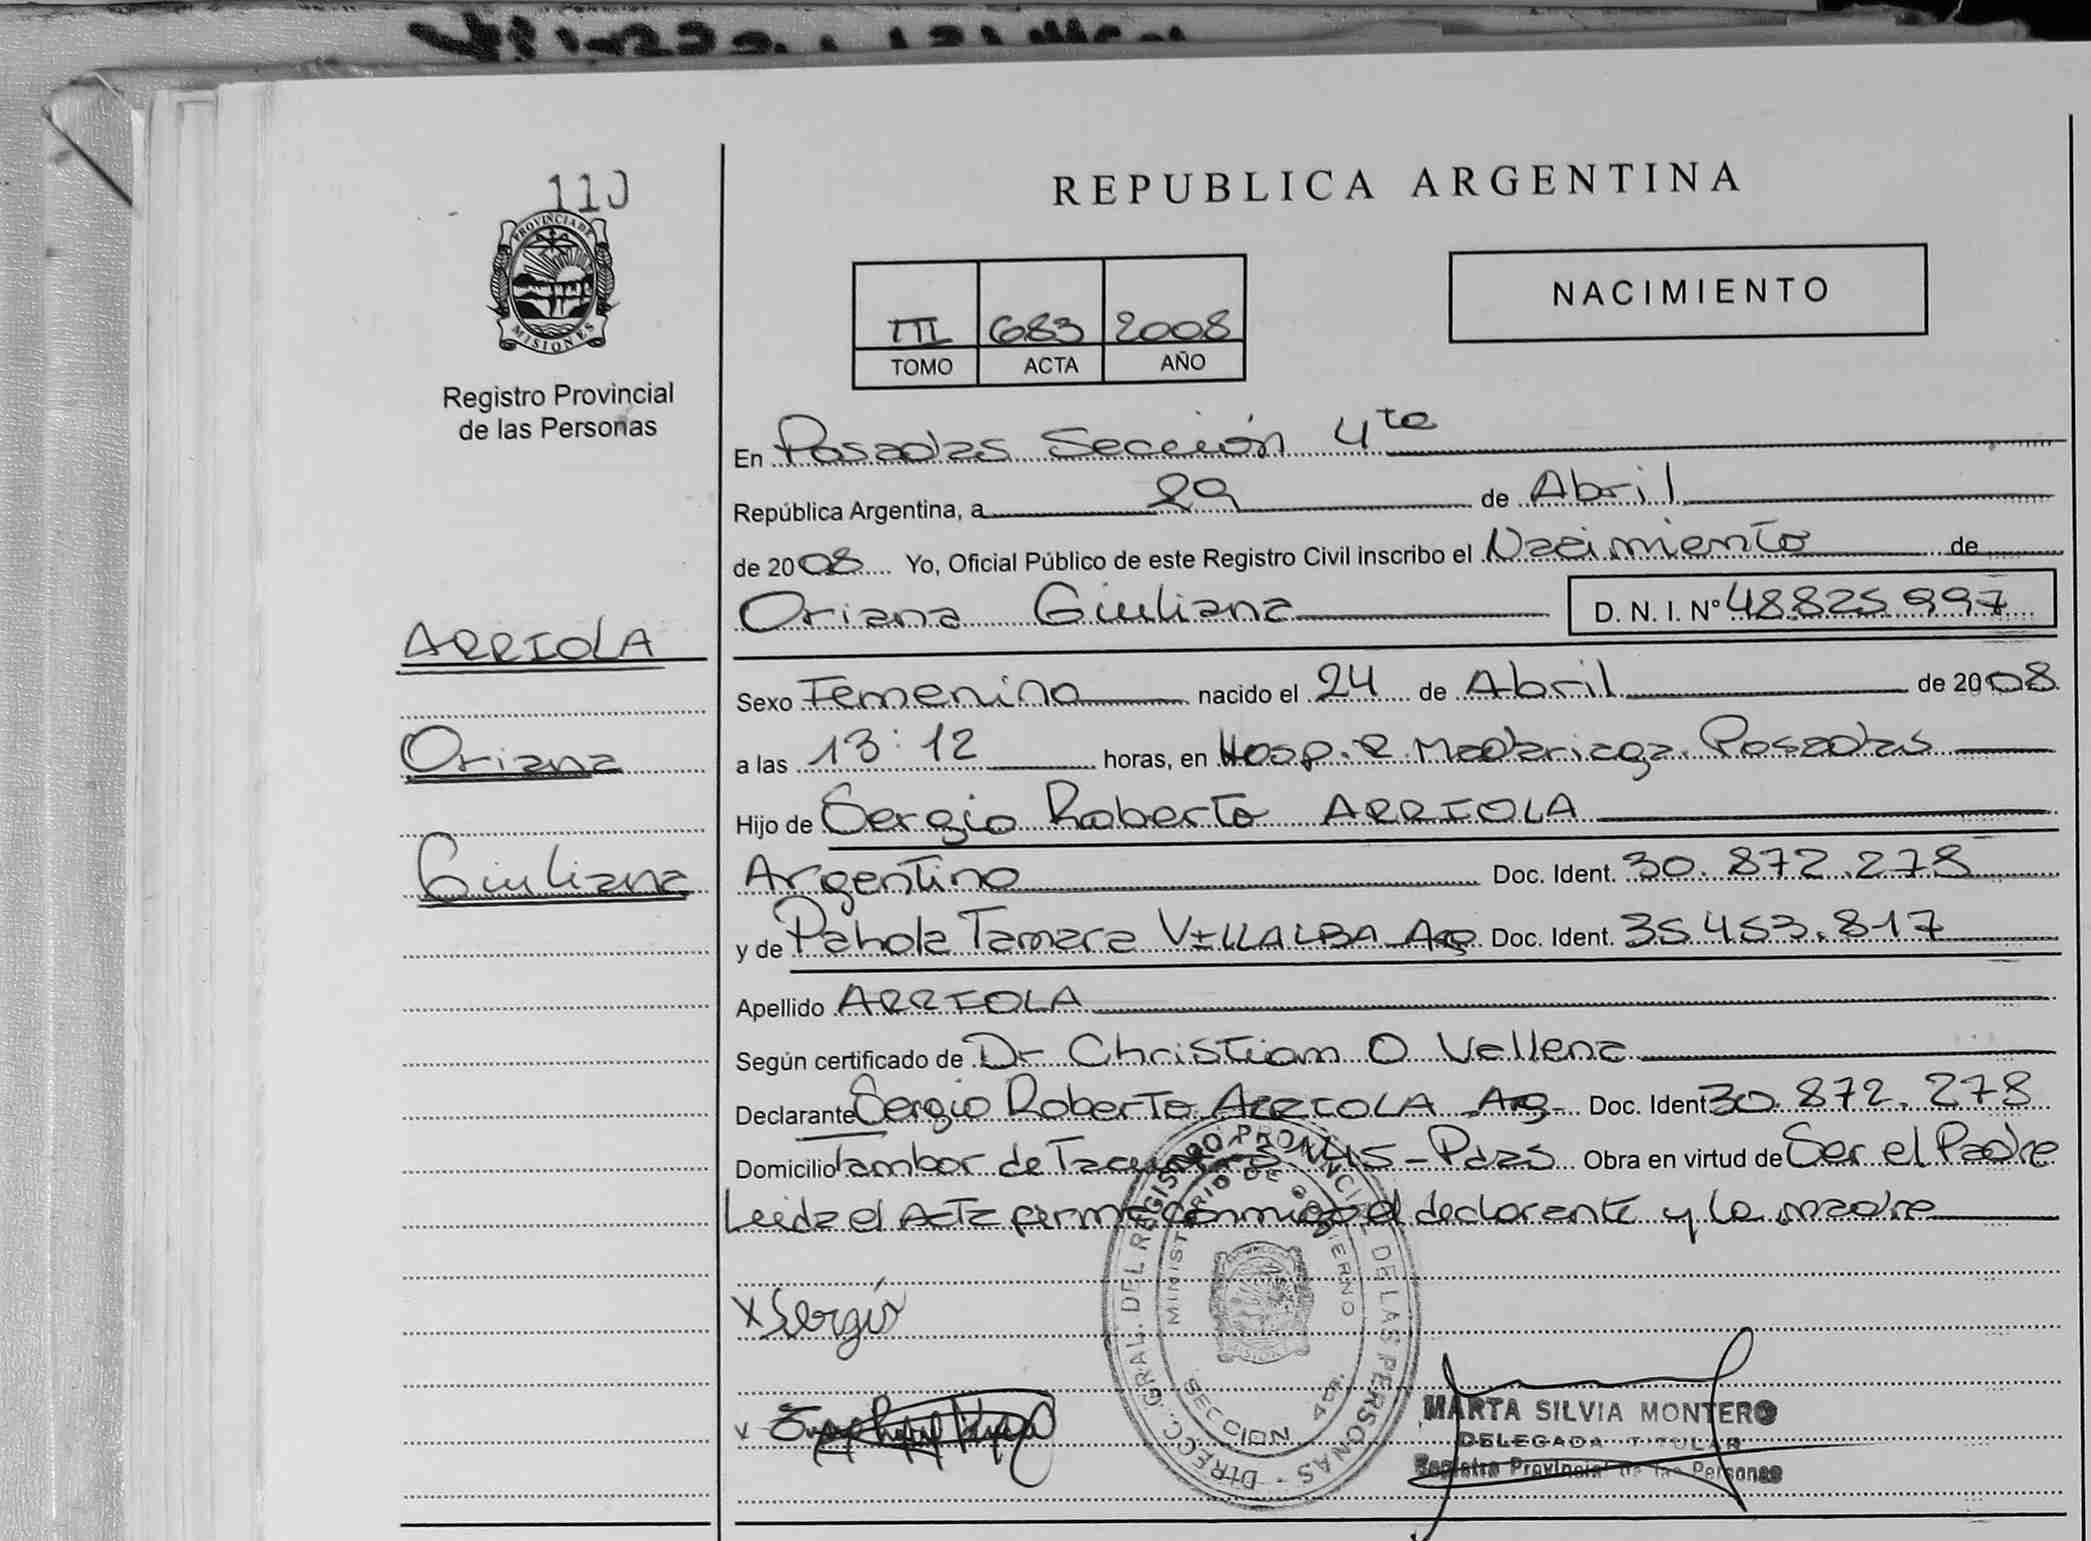 110
PROVINCIA DE
MISIONES
Registro Provincial
de las Personas
REPUBLICA ARGENTINA
III 683 2008
TOMO ACTA AÑO
NACIMIENTO
En Posadas Sección 4ta
República Argentina, a 29 de Abril
de 2008 Yo, Oficial Público de este Registro Civil inscribo el Nacimiento de
Oriana Giuliana D. N. I. Nº 48.825.997
ARRIOLA
Sexo Femenino nacido el 24 de Abril de 2008
Oriana
a las 13:12 horas, en Hosp. R. Madariaga. Posadas
Hijo de Sergio Roberto ARRIOLA
Giuliana
Argentino Doc. Ident. 30.872.278
y de Pahola Tamara VILLALBA Arg Doc. Ident. 35.453.817
Apellido ARRIOLA
Según certificado de Dr Christian O Vallena
Declarante Sergio Roberto ARRIOLA Arg Doc. Ident 30.872.278
Domicilio Tambor de - Pdas Obra en virtud de Ser el Padre
Leida el Acta firma conmigo el declarante y la madre
DIRECC. GRAL. DEL REGISTRO PROVINCIAL DE LAS PERSONAS
MINISTERIO DE GOBIERNO
SECCION 4ta.
x Sergio
MARTA SILVIA MONTERO
DELEGADA TITULAR
Registro Provincial de las Personas